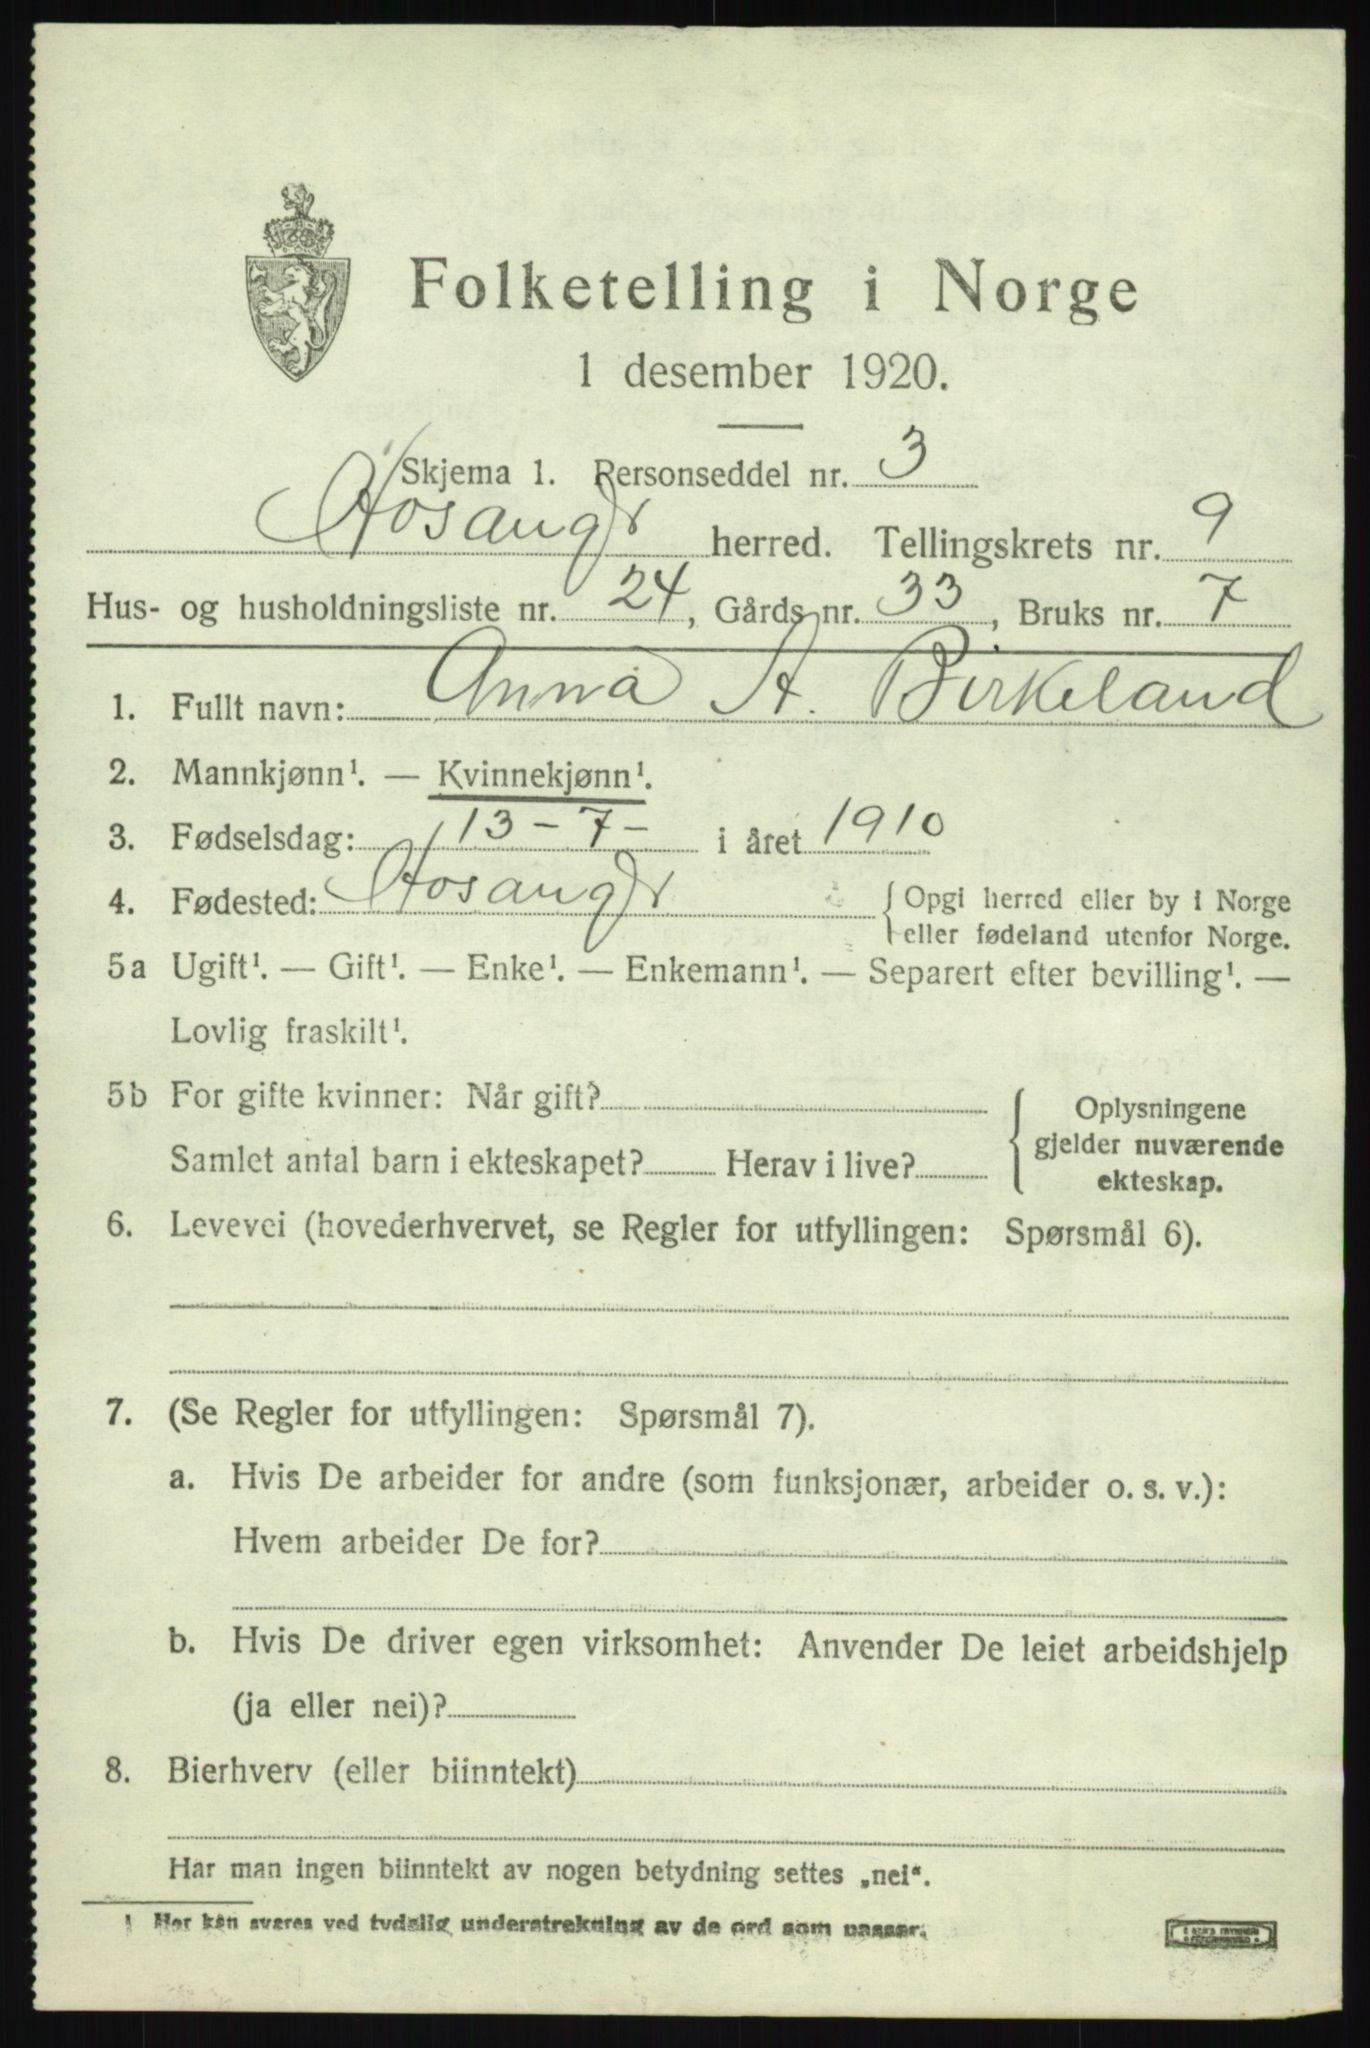 Folketelling i Norge
1 desember 1920.
Skjema 1. Personseddel nr. 3
Hosangr herred. Tellingskrets nr. 9
Hus- og husholdningsliste nr. 24, Gårds nr. 33, Bruks nr. 7
1. Fullt navn: Anna A. Birkeland
2. Mannkjønn¹. — Kvinnekjønn¹.
3. Fødselsdag: 13-7- i året 1910
4. Fødested: Hosangr { Opgi herred eller by i Norge
eller fødeland utenfor Norge.
5a Ugift¹. — Gift¹. — Enke¹. — Enkemann¹. — Separert efter bevilling¹. —
Lovlig fraskilt¹.
5b For gifte kvinner: Når gift?
Samlet antal barn i ekteskapet? Herav i live?
{ Oplysningene
gjelder nuværende
ekteskap.
6. Levevei (hovederhvervet, se Regler for utfyllingen: Spørsmål 6).
7. (Se Regler for utfyllingen: Spørsmål 7).
a. Hvis De arbeider for andre (som funksjonær, arbeider o. s. v.):
Hvem arbeider De for?
b. Hvis De driver egen virksomhet: Anvender De leiet arbeidshjelp
(ja eller nei)?
8. Bierhverv (eller biinntekt)
Har man ingen biinntekt av nogen betydning settes „nei“.
1 Her kan svares ved tydelig understrekning av de ord som passer.